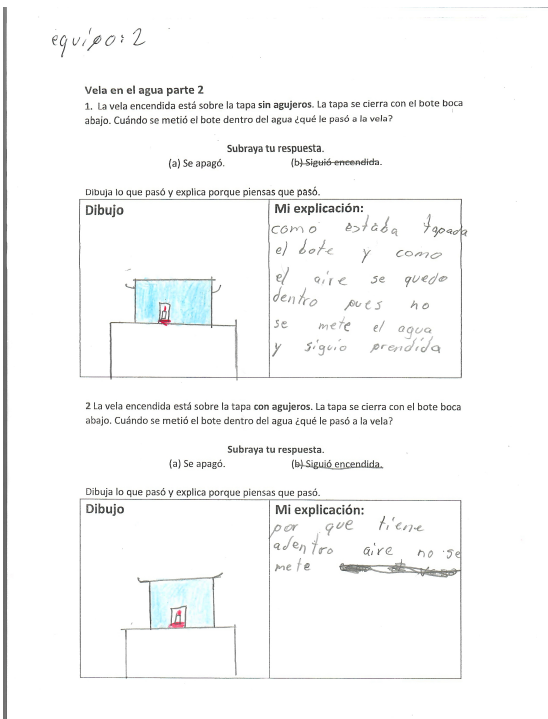 equipo: 2
Vela en el agua parte 2
1. La vela encendida está sobre la tapa sin agujeros. La tapa se cierra con el bote boca
abajo. Cuándo se metió el bote dentro del agua ¿qué le pasó a la vela?
Subraya tu respuesta.
(a) Se apagó. (b) Siguió encendida.
Dibuja lo que pasó y explica porque piensas que pasó.
Dibujo
Mi explicación:
como estaba tapada
el bote y como
el aire se quedo
dentro pues no
se mete el agua
y siguio prendida
2 La vela encendida está sobre la tapa con agujeros. La tapa se cierra con el bote boca
abajo. Cuándo se metió el bote dentro del agua ¿qué le pasó a la vela?
Subraya tu respuesta.
(a) Se apagó. (b) Siguió encendida.
Dibuja lo que pasó y explica porque piensas que pasó.
Dibujo
Mi explicación:
por que tiene
adentro aire no se
mete